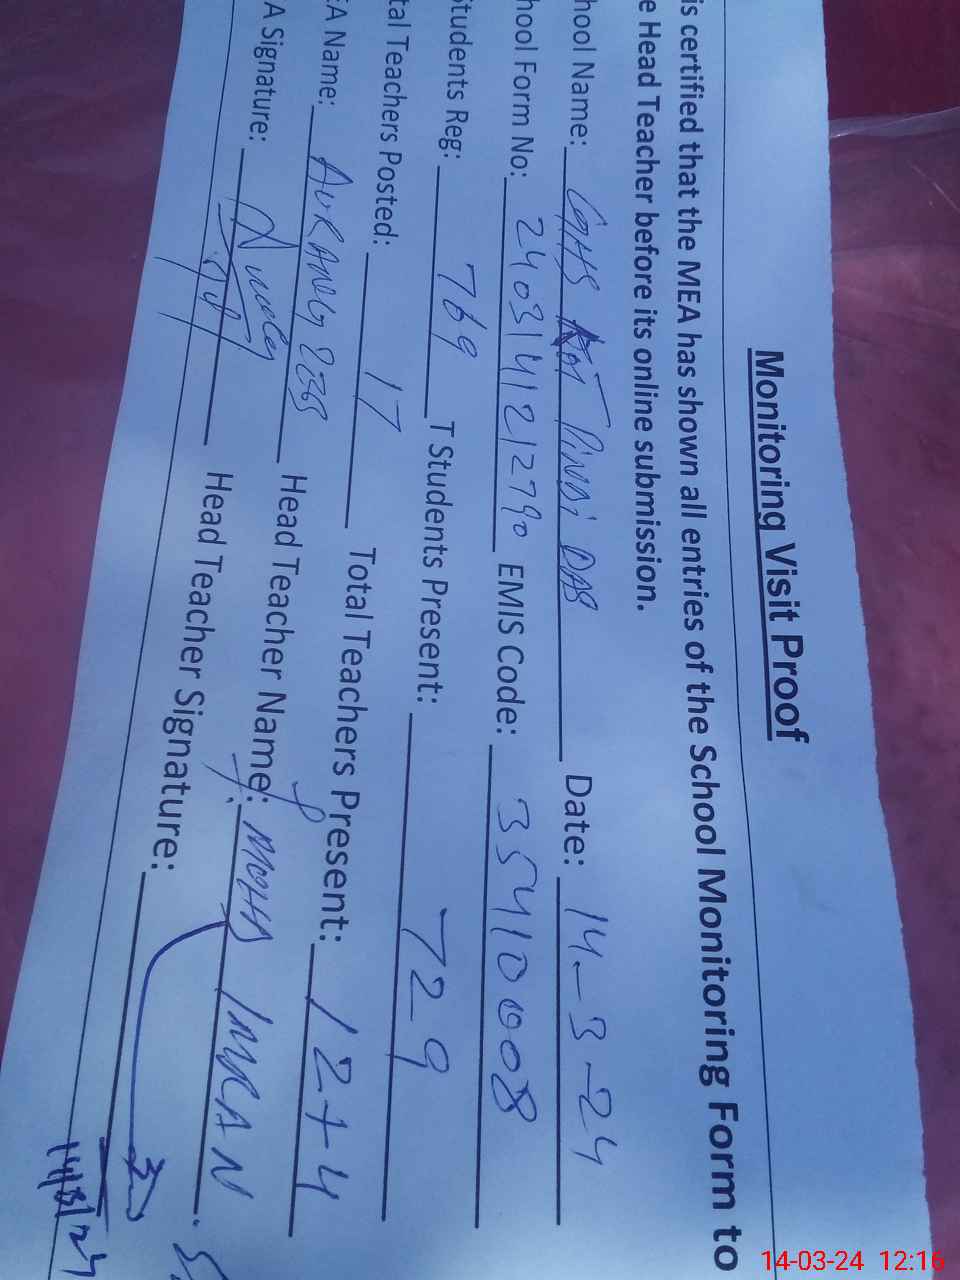 Monitoring Visit Proof
is certified that the MEA has shown all entries of the School Monitoring Form to
e Head Teacher before its online submission.
hool Name: GHS KOT PINDI DAS Date: 14-3-24
hool Form No: 2403141212790 EMIS Code: 35410008
Students Reg: 769 T Students Present: 729
tal Teachers Posted: 17 Total Teachers Present: 12+4
EA Name: AURANGZEB Head Teacher Name: MOHD IMRAN
A Signature: Head Teacher Signature:
14/3/24
14-03-24 12:16